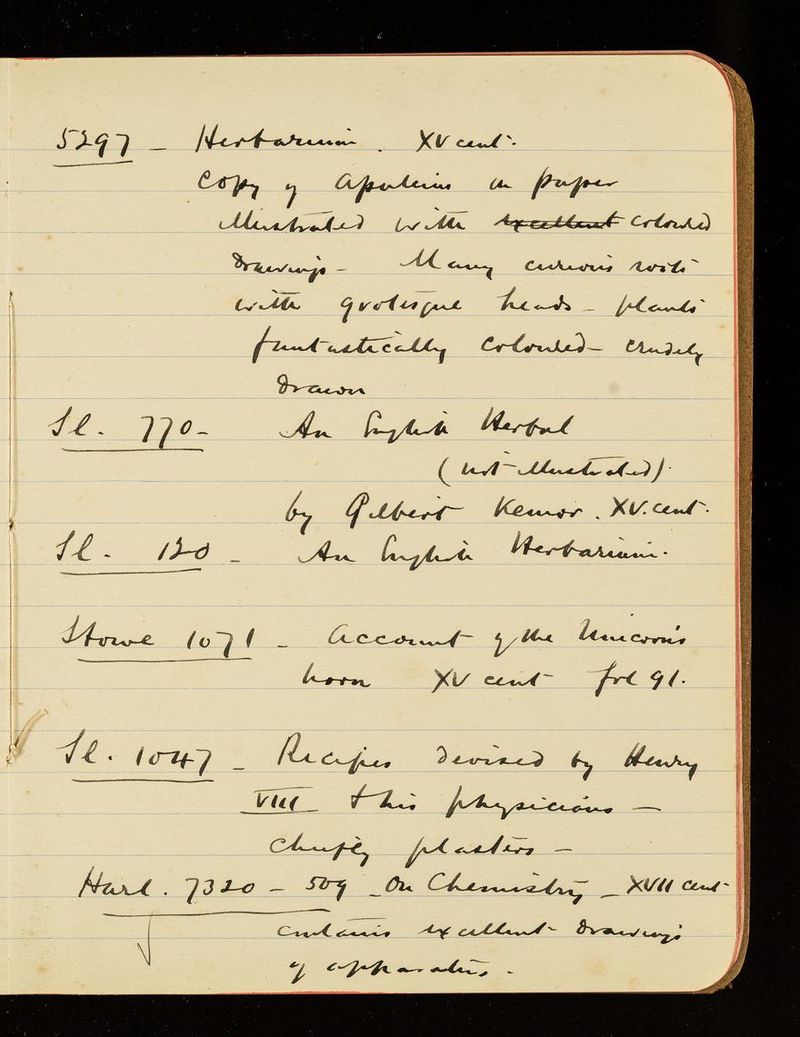 5297 - Herbarium. XV cent.
Copy of Apuleius on paper
illustrated with excellent coloured
drawings - Many curious roots
with grotesque heads - plants
fantastically coloured - crudely
drawn
Sl. 770 - An English Herbal
(not illustrated).
by Gilbert Kemor. XV. cent.
Sl. 120 - An English Herbarium.
Stowe 1071 - Account of the Unicorn's
horn XV cent fol 91.
Sl. 1047 - Recipes devised by Henry
VIII & his physicians -
chiefly plasters -
Harl. 7320 - 509 - On Chemistry - XVII cent
contains excellent drawings
of apparatus.